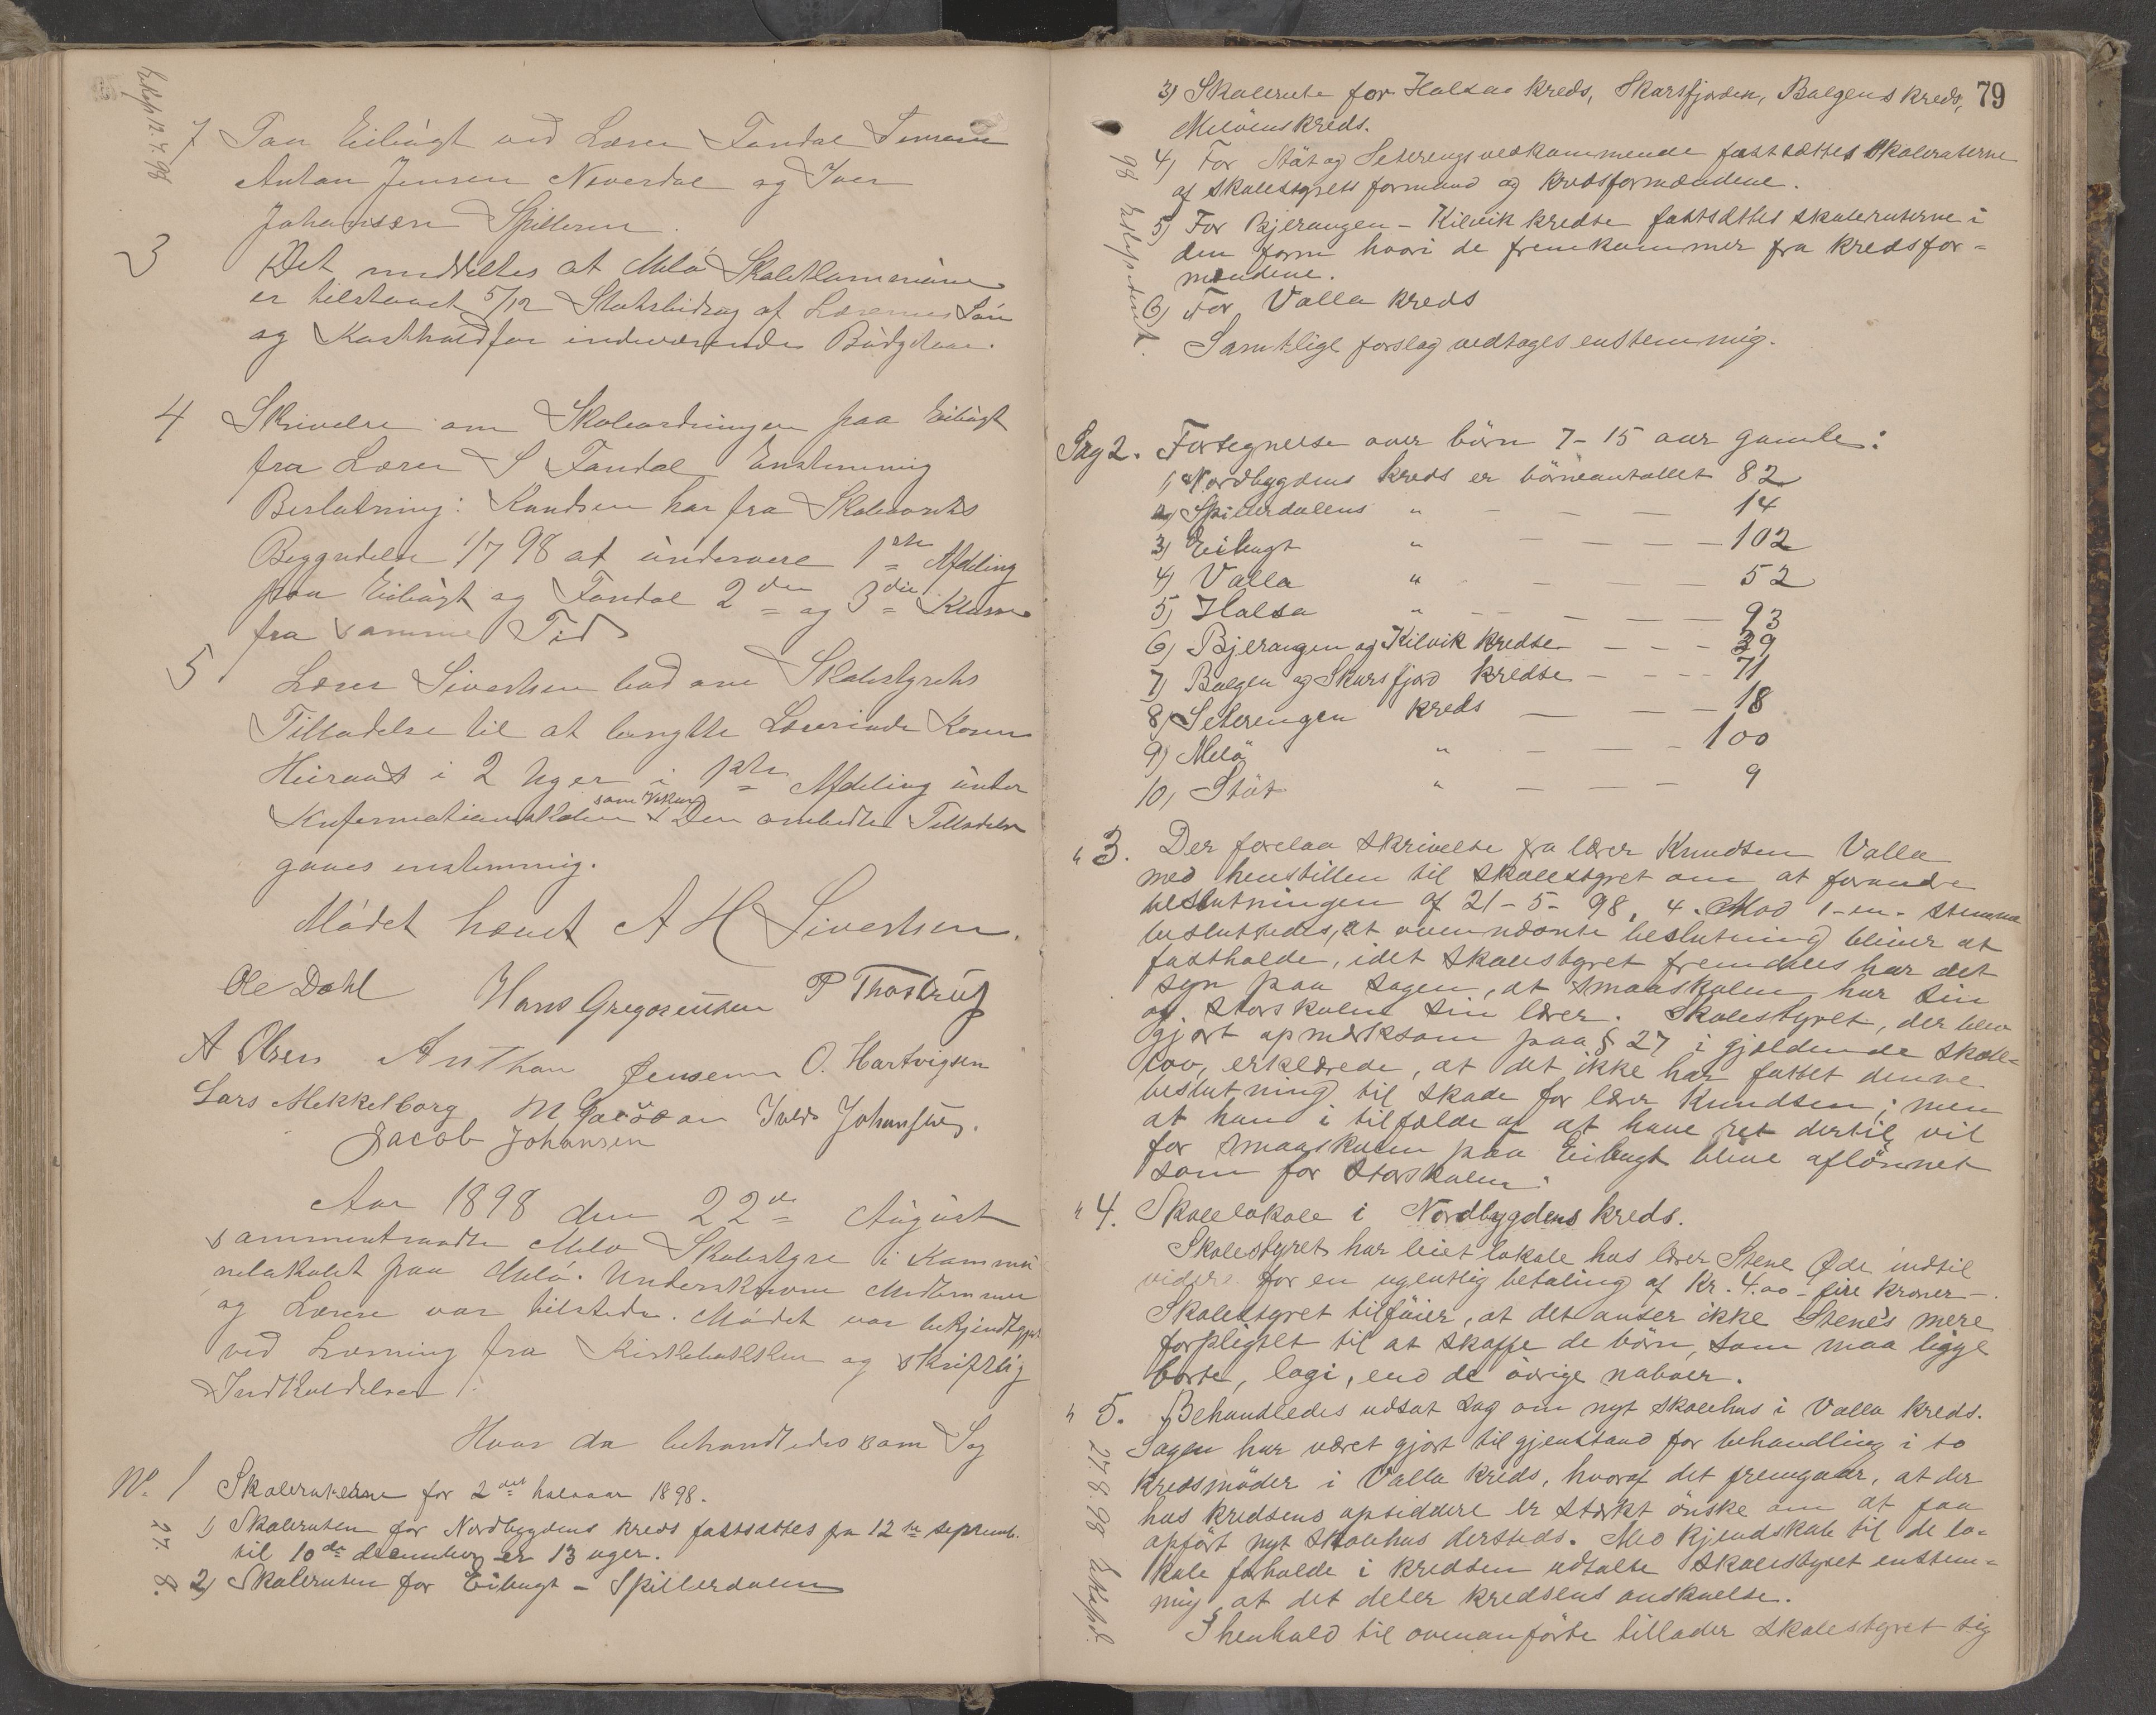 Exsp 12.7.98
7 Paa Eibugt ved Lærer Fondal Simon
Anton Jensen Neverdal og Iver
Johansen Spilleren.
3 Det meddeltes at Melö Skolekommune
er tilstaaet 5/12 Statsbidrag af Lærernes Løn
og Kosthold for indeværende Büdgetaar.
4 Skrivelse om Skoleordningen paa Eibugt
fra Lærer S Fondal Enstemmig
Beslutning: Knudsen har fra Skoleaarets
Begyndelse 1/7 98 at undervise 1ste Afdeling
paa Eibügt og Fondal 2den og 3die Klasse
fra samme Tid
5 Lærer Sivertsen bad om Skolestyrets
Tilladelse til at benytte Lærerinde Karen
i 2 Uger i 1ste Afdeling ünder
Konfirmationsskolen som Vikar Den ombedte Tilladelse
gaves enstemmig.
Mödet hævet A H Sivertsen.
Ole Dahl Hans Gregoriussen P Thostrup
A Olsen Anthon Jensen O. Hartvigsen
Lars Mekkelborg M Jacobsen Johansen.
Jacob Johansen
Aar 1898 den 22de August
sammentraadte Melö Skolestyre i Kommü
nelokalet paa Melö. Underskrevne Medlemmer
og Lærere var tilstede. Mödet var bekjendtgjort
ved Læsning fra Kirkebakken og skriftlig
Indkaldelse.
Hvor da behandledes som Sag
No. 1 Skoleruterne for 2det halvaar 1898.
1) Skoleruten for Nordbygdens kreds fastsættes fra 12te septemb.
til 10de december er 13 uger.
2) Skoleruten for Eibugt - Spillerdalen
27. 8.
79
3) Skolerute for Halsaa kreds, Skarsfjorden, Bolgens kreds,
Melöens kreds.
4) For Stöt og Seterengs vedkommende fastsættes skoleruterne
af skolestyrets formand og kredsformændene.
5) For Bjerangen - Kilvik kredse fastsættes skoleruterne i
den form hvori de fremkommer fra kredsfor-
mændene.
6) For Valla kreds
Samtlige forslag vedtages enstemmig.
98 Exsp.
Sag 2. Fortegnelse over börn 7-15 aar gamle:
1) Nordbygdens kreds er börneantallet 82
2) Spillerdalens " — — — 14
3) Eibugt " — — — 102
4) Valla " — — — 52
5) Halsa " — — — 93
6) Bjerangen og Kilvik kredse — — — 39
7) Bolgen og Skarsfjord kredse — — — 71
8) Seterengen kreds — — — 18
9) Melö " — — — 100
10) Stöt " — — — 9
" 3. Der forelaa skrivelse fra lærer Knudsen Valla
med henstillen til skolestyret om at forandre
beslutningen af 21-5-98. 4. Mod 1-en- stemme
besluttedes, at ovennævnte beslutning bliver at
fastholde, idet skolestyret fremdeles har det
syn paa sagen, at smaaskolen har sin
og storskolen sin lærer. Skolestyret, der blev
gjort opmerksom paa § 27 i gjældende skole-
lov, erklærede, at det ikke har fattet denne
beslutning til skade for lærer Knudsen; men
at han i tilfælde af at have ret dertil vil
for smaaskolen paa Eibugt blive aflönnet
som for storskolen.
" 4. Skolelokale i Nordbygdens kreds.
Skolestyret har leiet lokale hos lærer Stene Øde indtil
videre for en ugentlig betaling af Kr. 4.00 - fire kroner -.
Skolestyret tilföier, at det anser ikke Stene's mere
forpligtet til at skaffe de börn, som maa ligge
borte, logi, end de övrige naboer.
" 5. Behandledes udsat sag om nyt skolehus i Valla kreds.
Sagen har været gjort til gjenstand for behandling i to
kredsmöder i Valla kreds, hvoraf det fremgaar, at der
hos kredsens opsiddere er sterkt önske om at faa
opfört nyt skolehus dersteds. Med kjendskab til de lo-
kale forholde i kredsen udtalte skolestyret enstem-
mig, at det deler kredsens anskuelse.
I henhold til ovenanförte tillader skolestyret sig
27.8.98 Exsped.